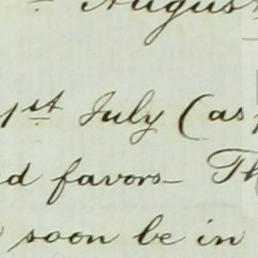 August
1st July (as
d favors– Th
soon be in